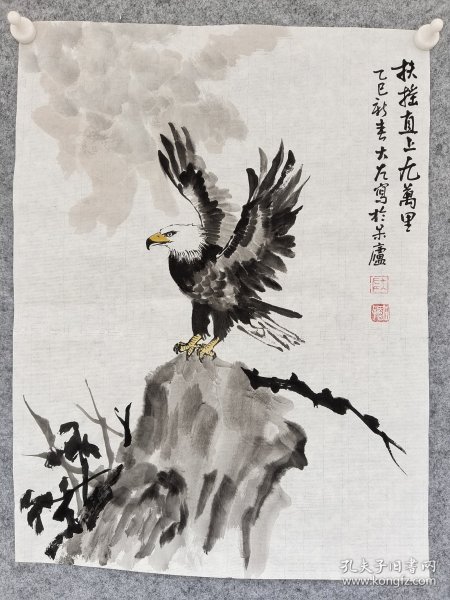 扶搖直上九萬里
乙巳新春大左寫於呆廬
孔夫子旧书网
www.kongfz.com